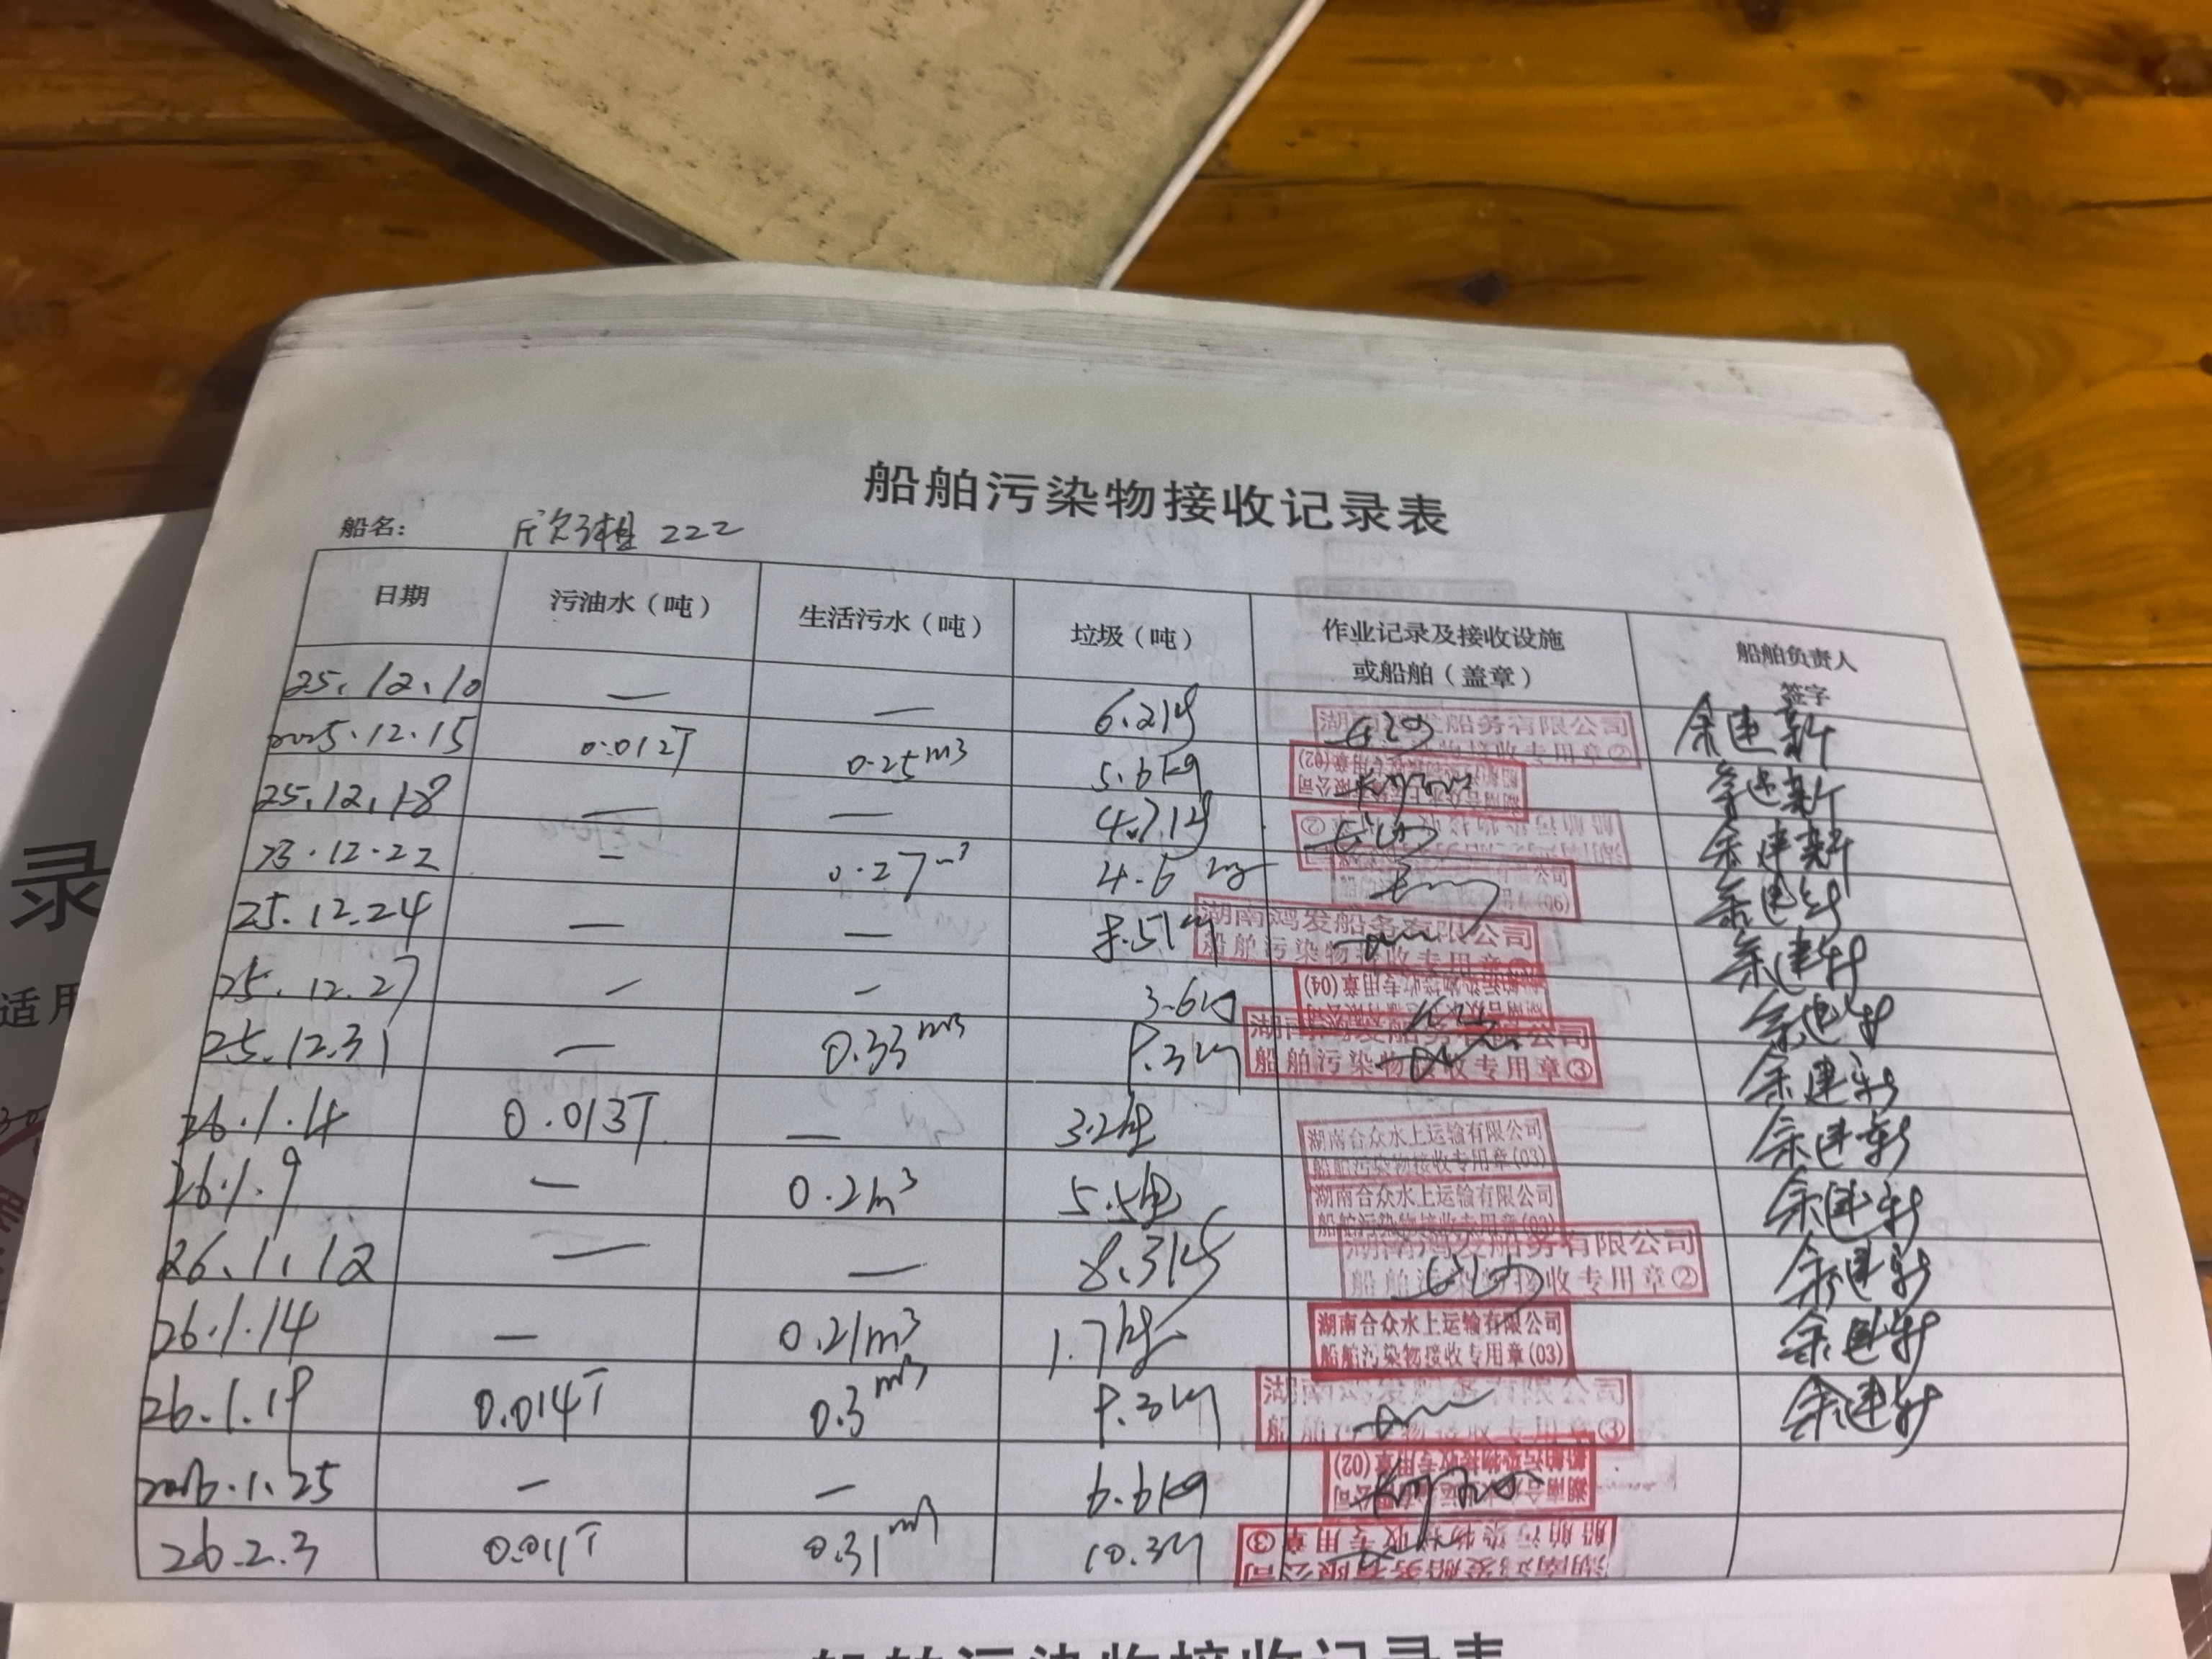 船舶污染物接收记录表
船名： 222
日期 污油水（吨） 生活污水（吨） 垃圾（吨） 作业记录及接收设施或船舶（盖章） 船舶负责人签字
25.12.10 — — 6.2kg 湖南鸿发船务有限公司 船舶污染物接收专用章② 余建新
2025.12.15 0.012T 0.25m3 5.6kg 船舶污染物接收专用章(02) 余建新
25.12.18 — — 4.7kg 船舶污染物接收专用章② 余建新
12.22 — 0.27m3 4.6kg (06) 余建新
25.12.24 — — 8.5kg 湖南鸿发船务有限公司 船舶污染物接收专用章 余建新
25.12.27 — — 3.6kg 船舶污染物接收专用章(04) 余建新
25.12.31 — 0.33m3 8.3kg 湖南鸿发船务有限公司 船舶污染物接收专用章③ 余建新
26.1.4 0.013T — 3.2kg 湖南合众水上运输有限公司 船舶污染物接收专用章(03) 余建新
26.1.9 — 0.2m3 5.5kg 湖南合众水上运输有限公司 船舶污染物接收专用章(03) 余建新
26.1.12 — — 8.3kg 湖南鸿发船务有限公司 船舶污染物接收专用章② 余建新
26.1.14 — 0.21m3 1.7kg 湖南合众水上运输有限公司 船舶污染物接收专用章(03) 余建新
26.1.19 0.014T 0.3m3 8.3kg 湖南鸿发船务有限公司 船舶污染物接收专用章③ 余建新
2026.1.25 — — 6.6kg 船舶污染物接收专用章(02)
26.2.3 0.011T 0.31m3 10.3kg 湖南鸿发船务有限公司 船舶污染物接收专用章③
录
适用
船舶污染物接收记录表